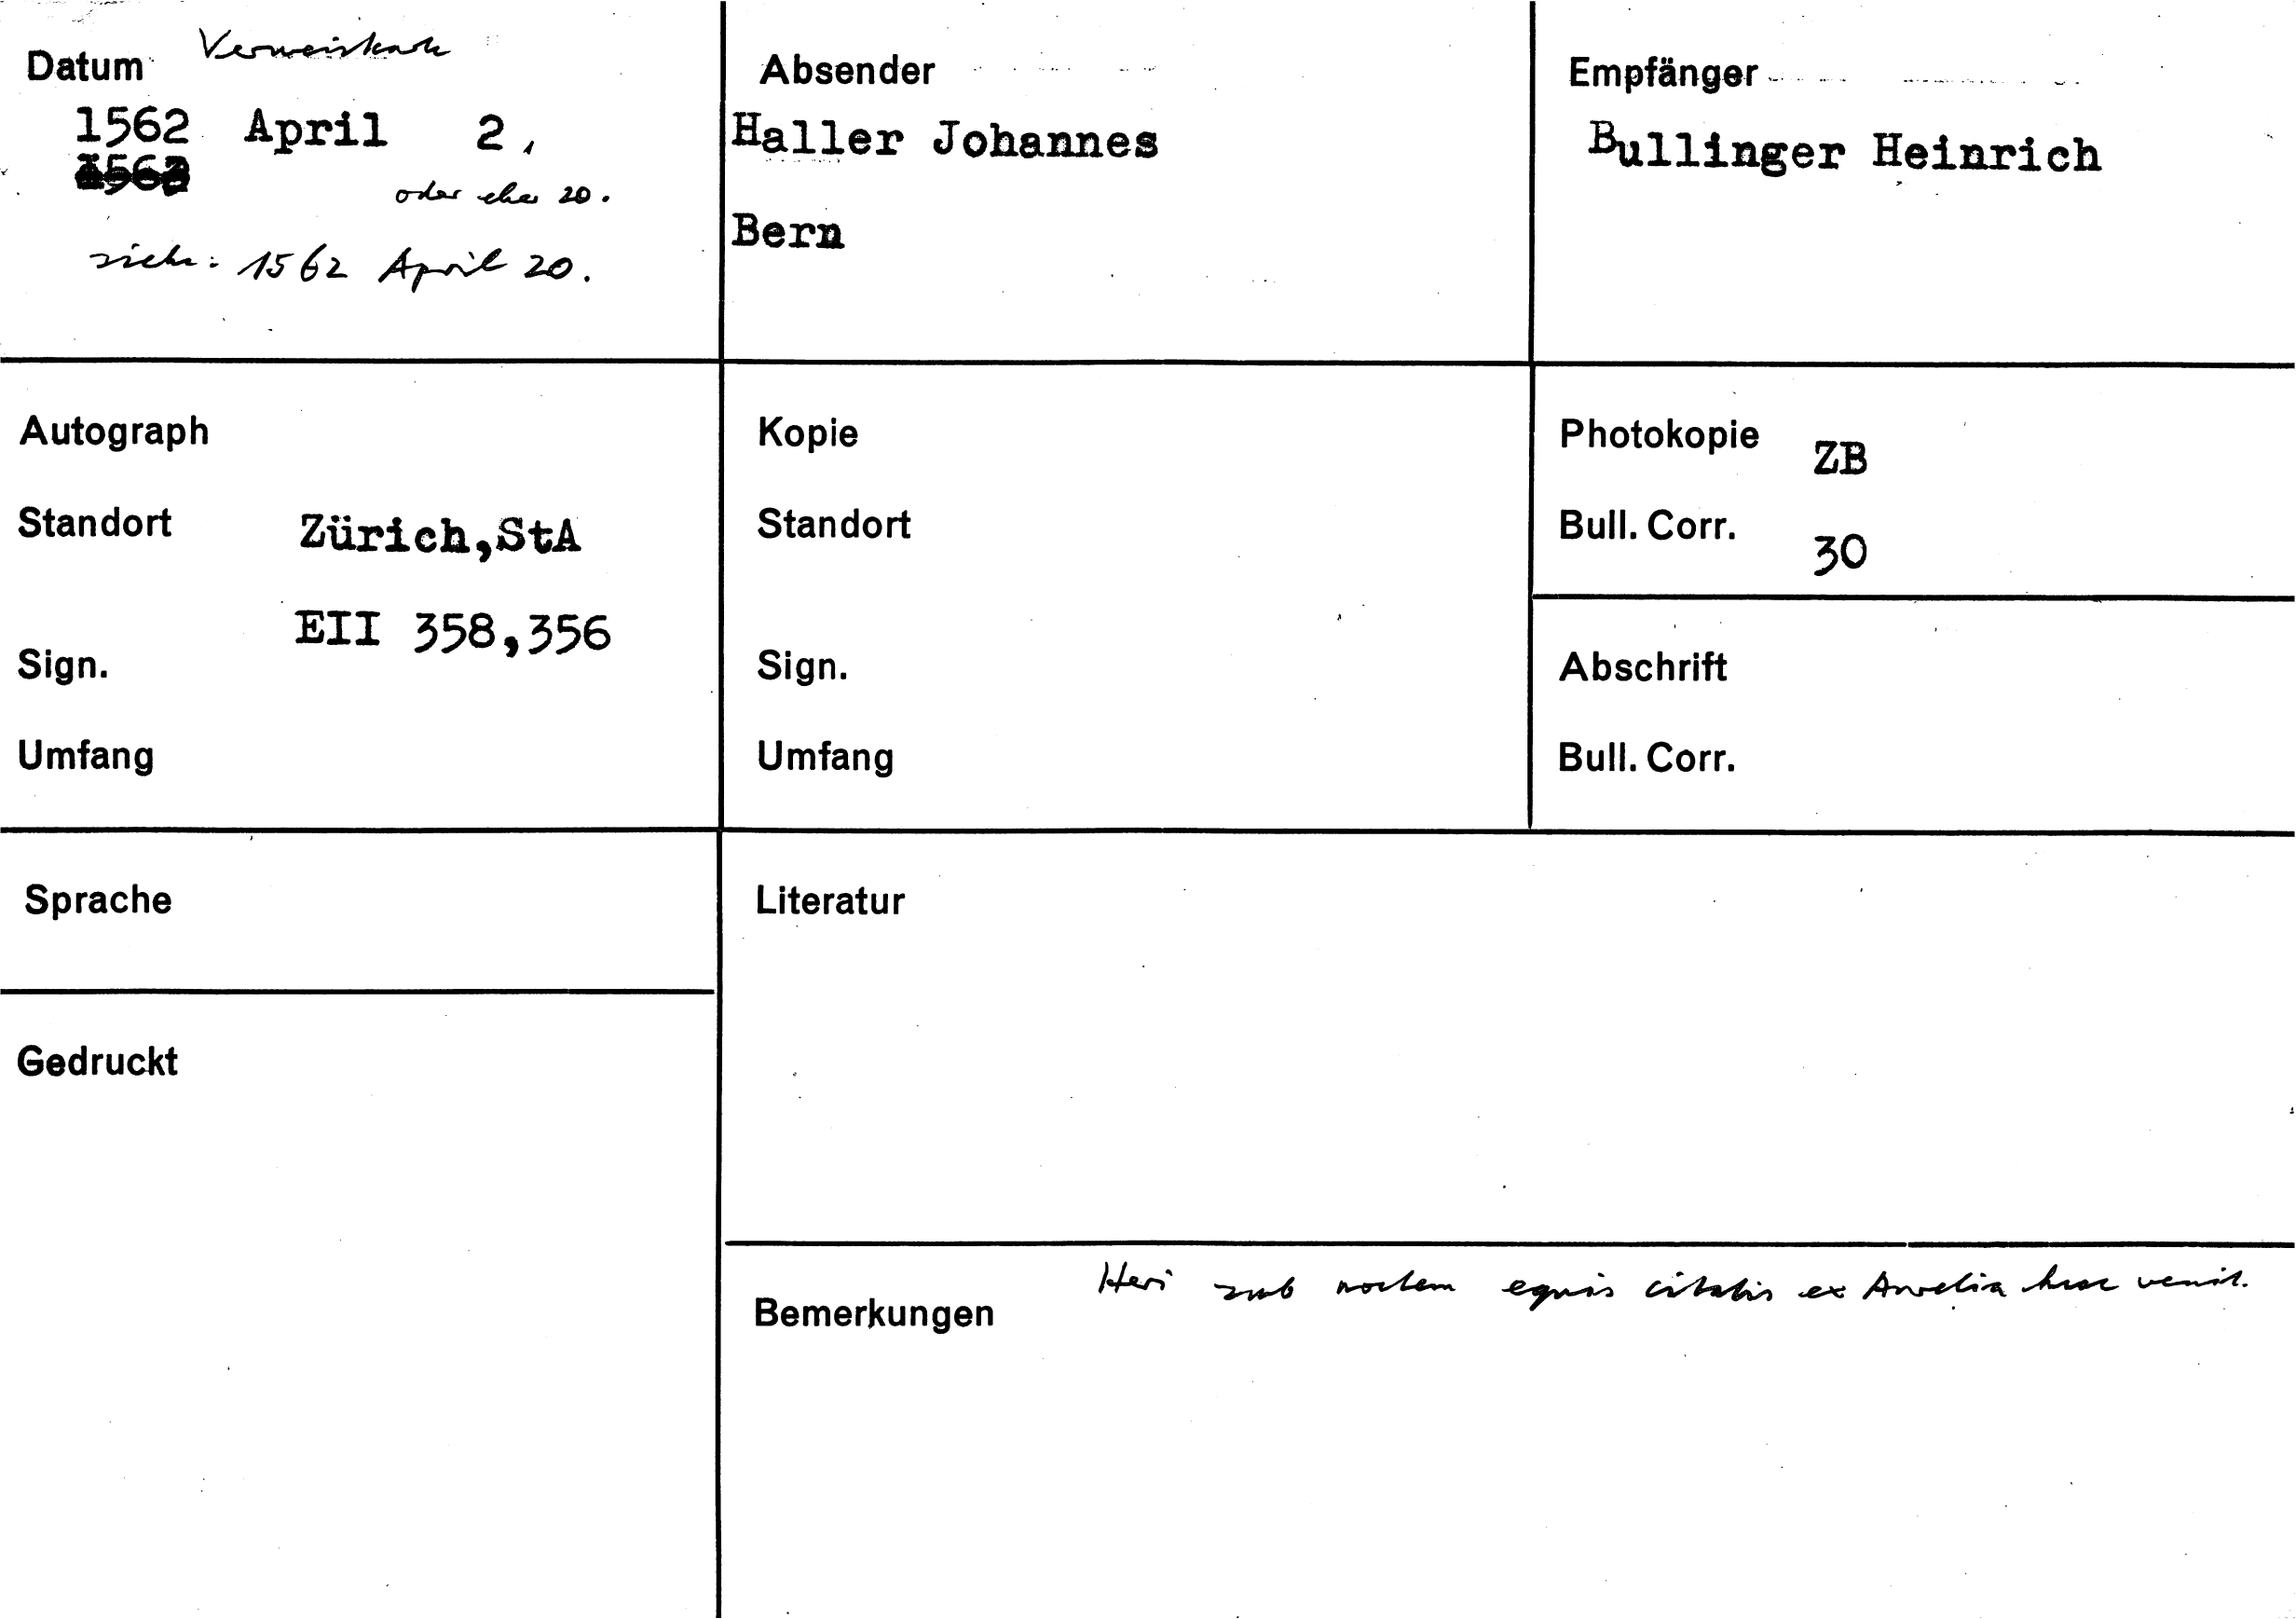 Datum Verweiskarte
1562 April 2,
1562
oder eher 20.
siehe: 1562 April 20.
Absender
Haller Johannes
Bern
Empfänger
Bullinger Heinrich
Autograph
Standort Zürich,StA
EII 358,356
Sign.
Umfang
Kopie
Standort
Sign.
Umfang
Photokopie ZB
Bull. Corr. 30
Abschrift
Bull. Corr.
Sprache
Gedruckt
Literatur
Heri sub noctem equis citatis ex Aurelia huc venit.
Bemerkungen